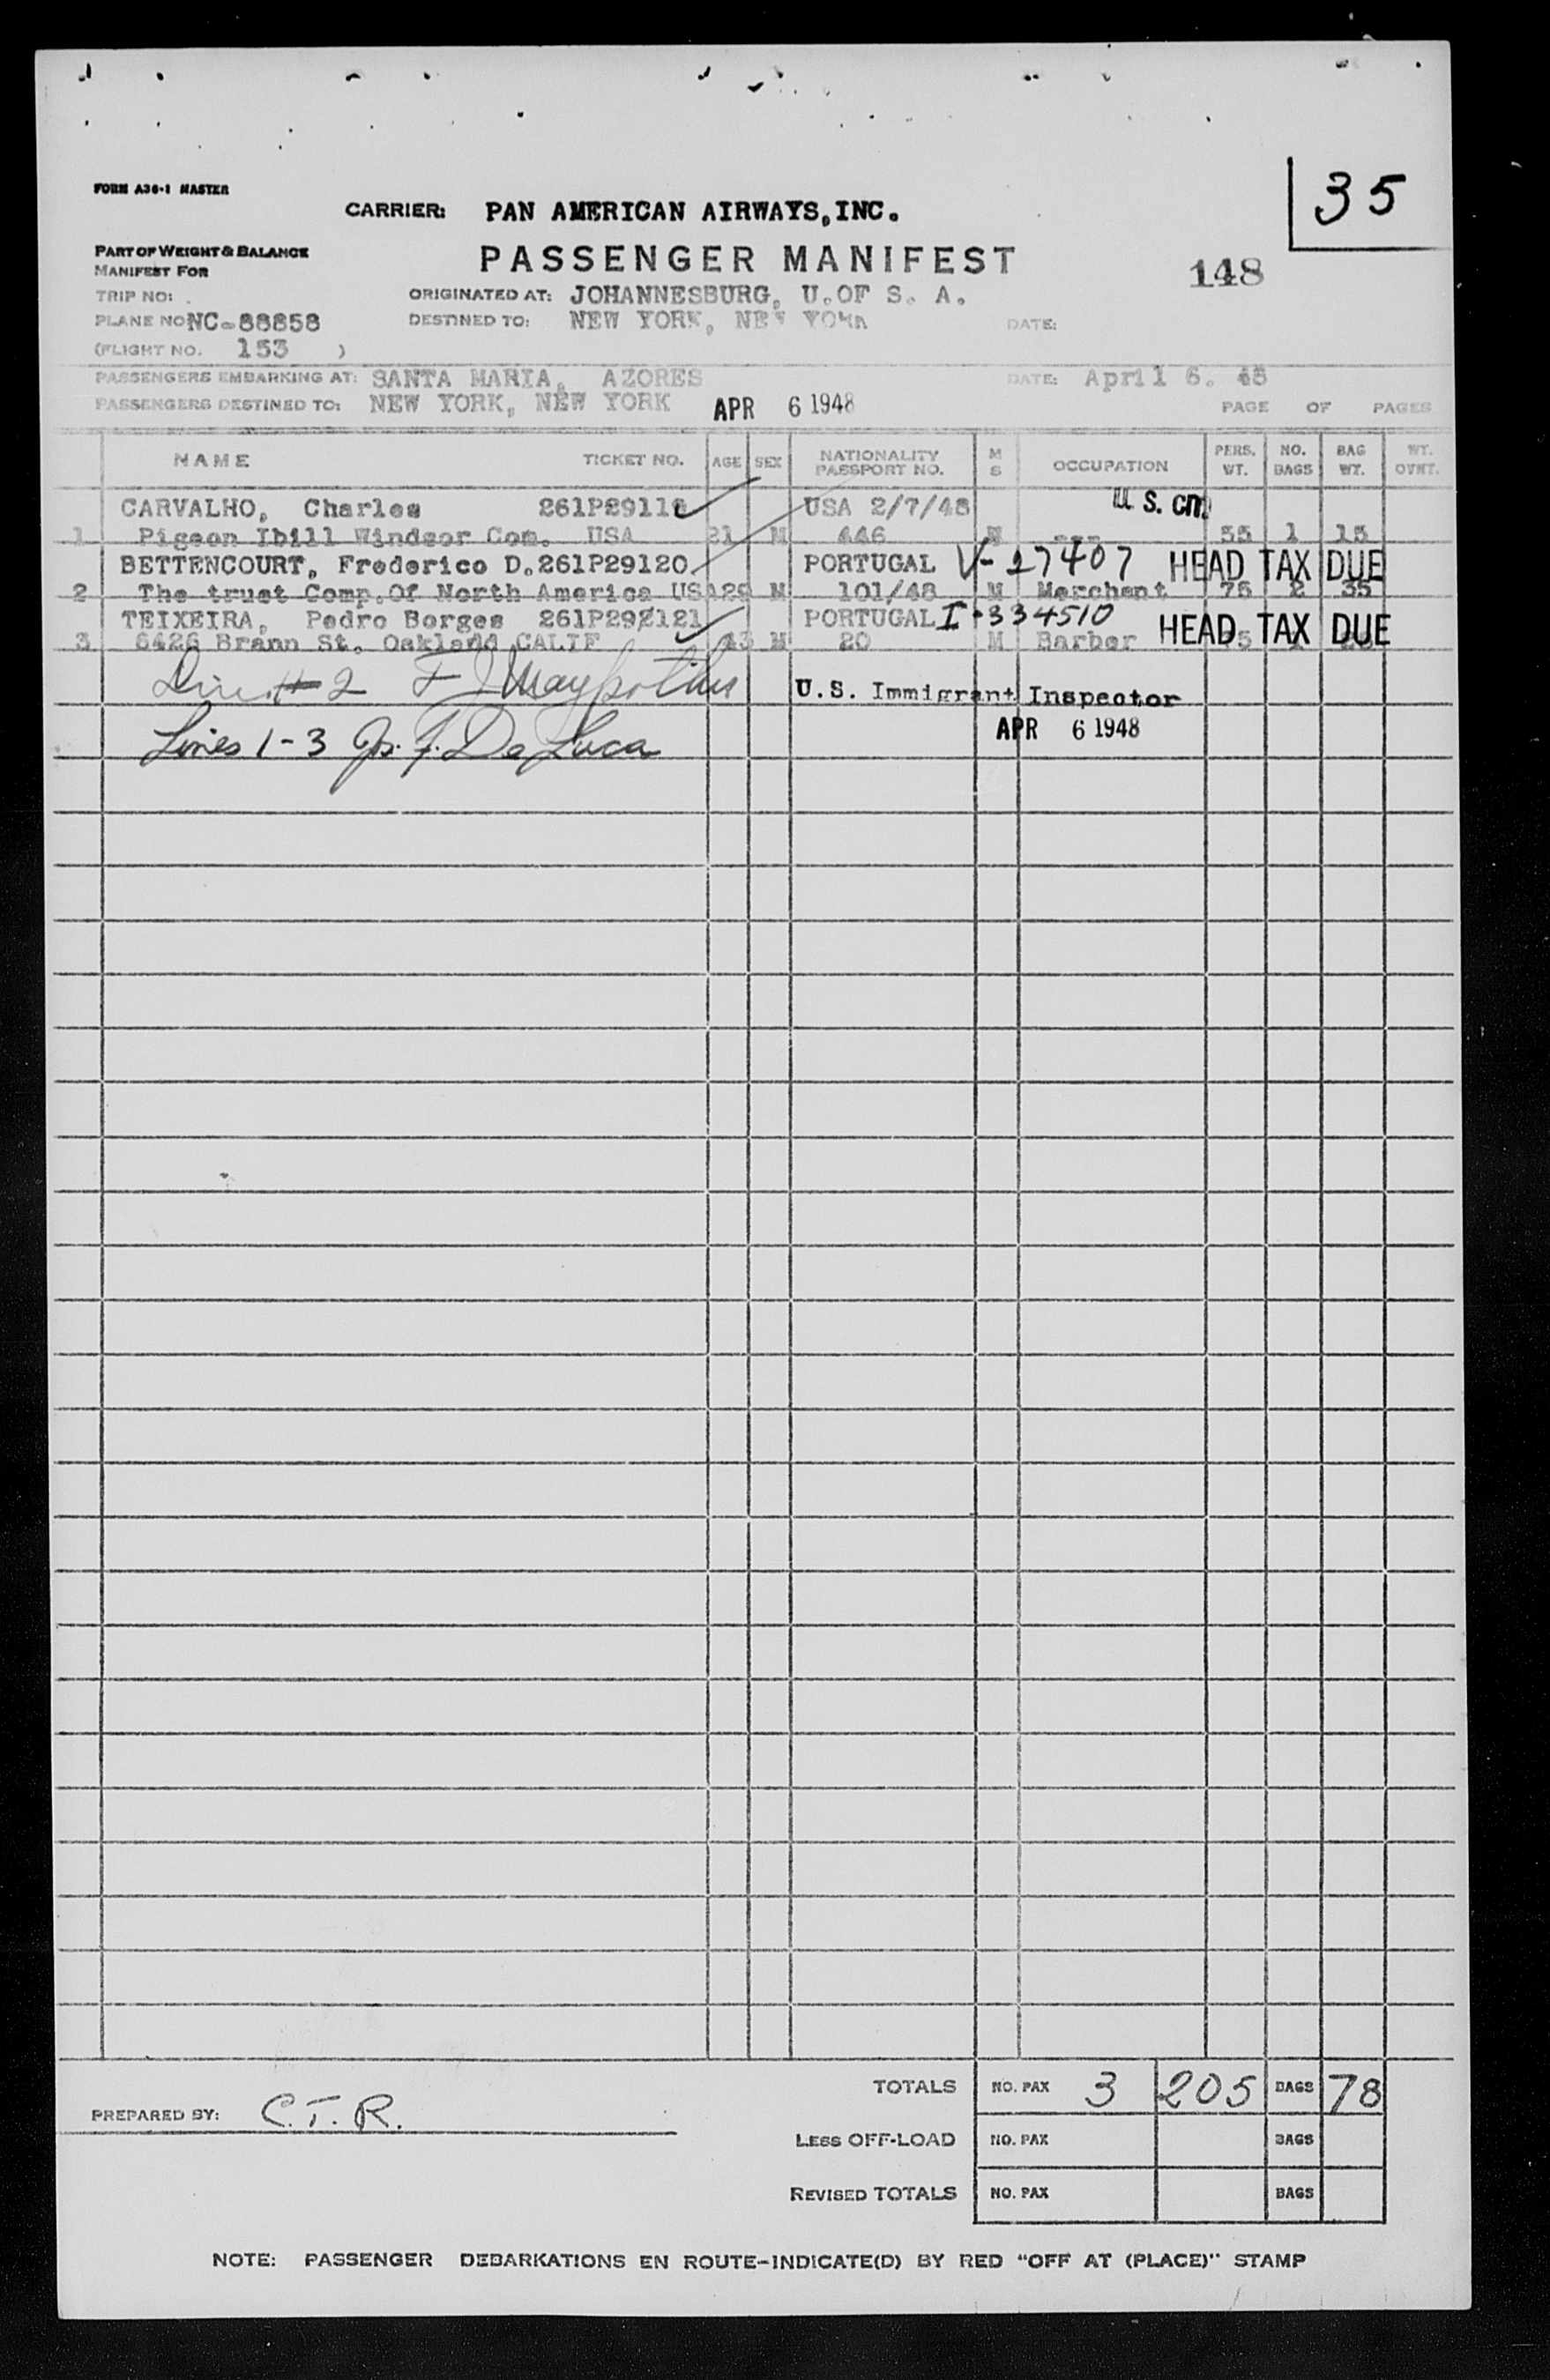 FORM A36-1 MASTER
35
CARRIER: PAN AMERICAN AIRWAYS, INC.
PART OF WEIGHT & BALANCE
MANIFEST FOR
PASSENGER MANIFEST
148
TRIP NO:
ORIGINATED AT: JOHANNESBURG, U.OF S. A.
PLANE NO NC-88858
DESTINED TO: NEW YORK, NEW YORK
DATE:
(FLIGHT NO. 153 )
PASSENGERS EMBARKING AT: SANTA MARIA, AZORES
DATE: April 6. 48
PASSENGERS DESTINED TO: NEW YORK, NEW YORK APR 6 1948
PAGE OF PAGES
NAME TICKET NO. AGE SEX NATIONALITY PASSPORT NO. M S OCCUPATION PERS. WT. NO. BAGS BAG WT. WT. OVHT.
CARVALHO, Charles USA 2/7/48 U.S. Cm
1 Pigeon Ibill Windsor Com. USA 21 M 446 --- 55 1 15
BETTENCOURT, Frederico D. 261P29120 PORTUGAL V-27407 HEAD TAX DUE
2 The trust Comp. Of North America USA 29 M 101/48 M Merchant 75 2 35
TEIXEIRA, Pedro Borges PORTUGAL I-334510 HEAD TAX DUE
3 6426 Brann St. Oakland CALIF 43 M 20 M Barber
Line # 2
U.S. Immigrant Inspector
APR 6 1948
Lines 1-3 Jos. F. De Luca
TOTALS NO. PAX 3 205 BAGS 78
PREPARED BY: C.T.R.
LESS OFF-LOAD NO. PAX BAGS
REVISED TOTALS NO. PAX BAGS
NOTE: PASSENGER DEBARKATIONS EN ROUTE-INDICATE(D) BY RED "OFF AT (PLACE)" STAMP